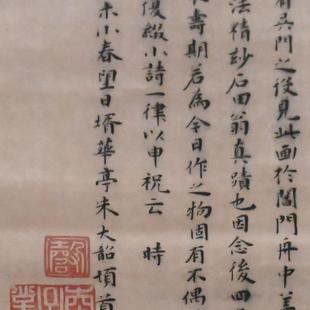 有吳門之從見此画於閶門舟中盖
法精玅石田翁真蹟也因念後四
壽期若為今日作之物固有不偶
復綴小詩一律以申祝云 時
未小春望日壻華亭朱大韶頓首